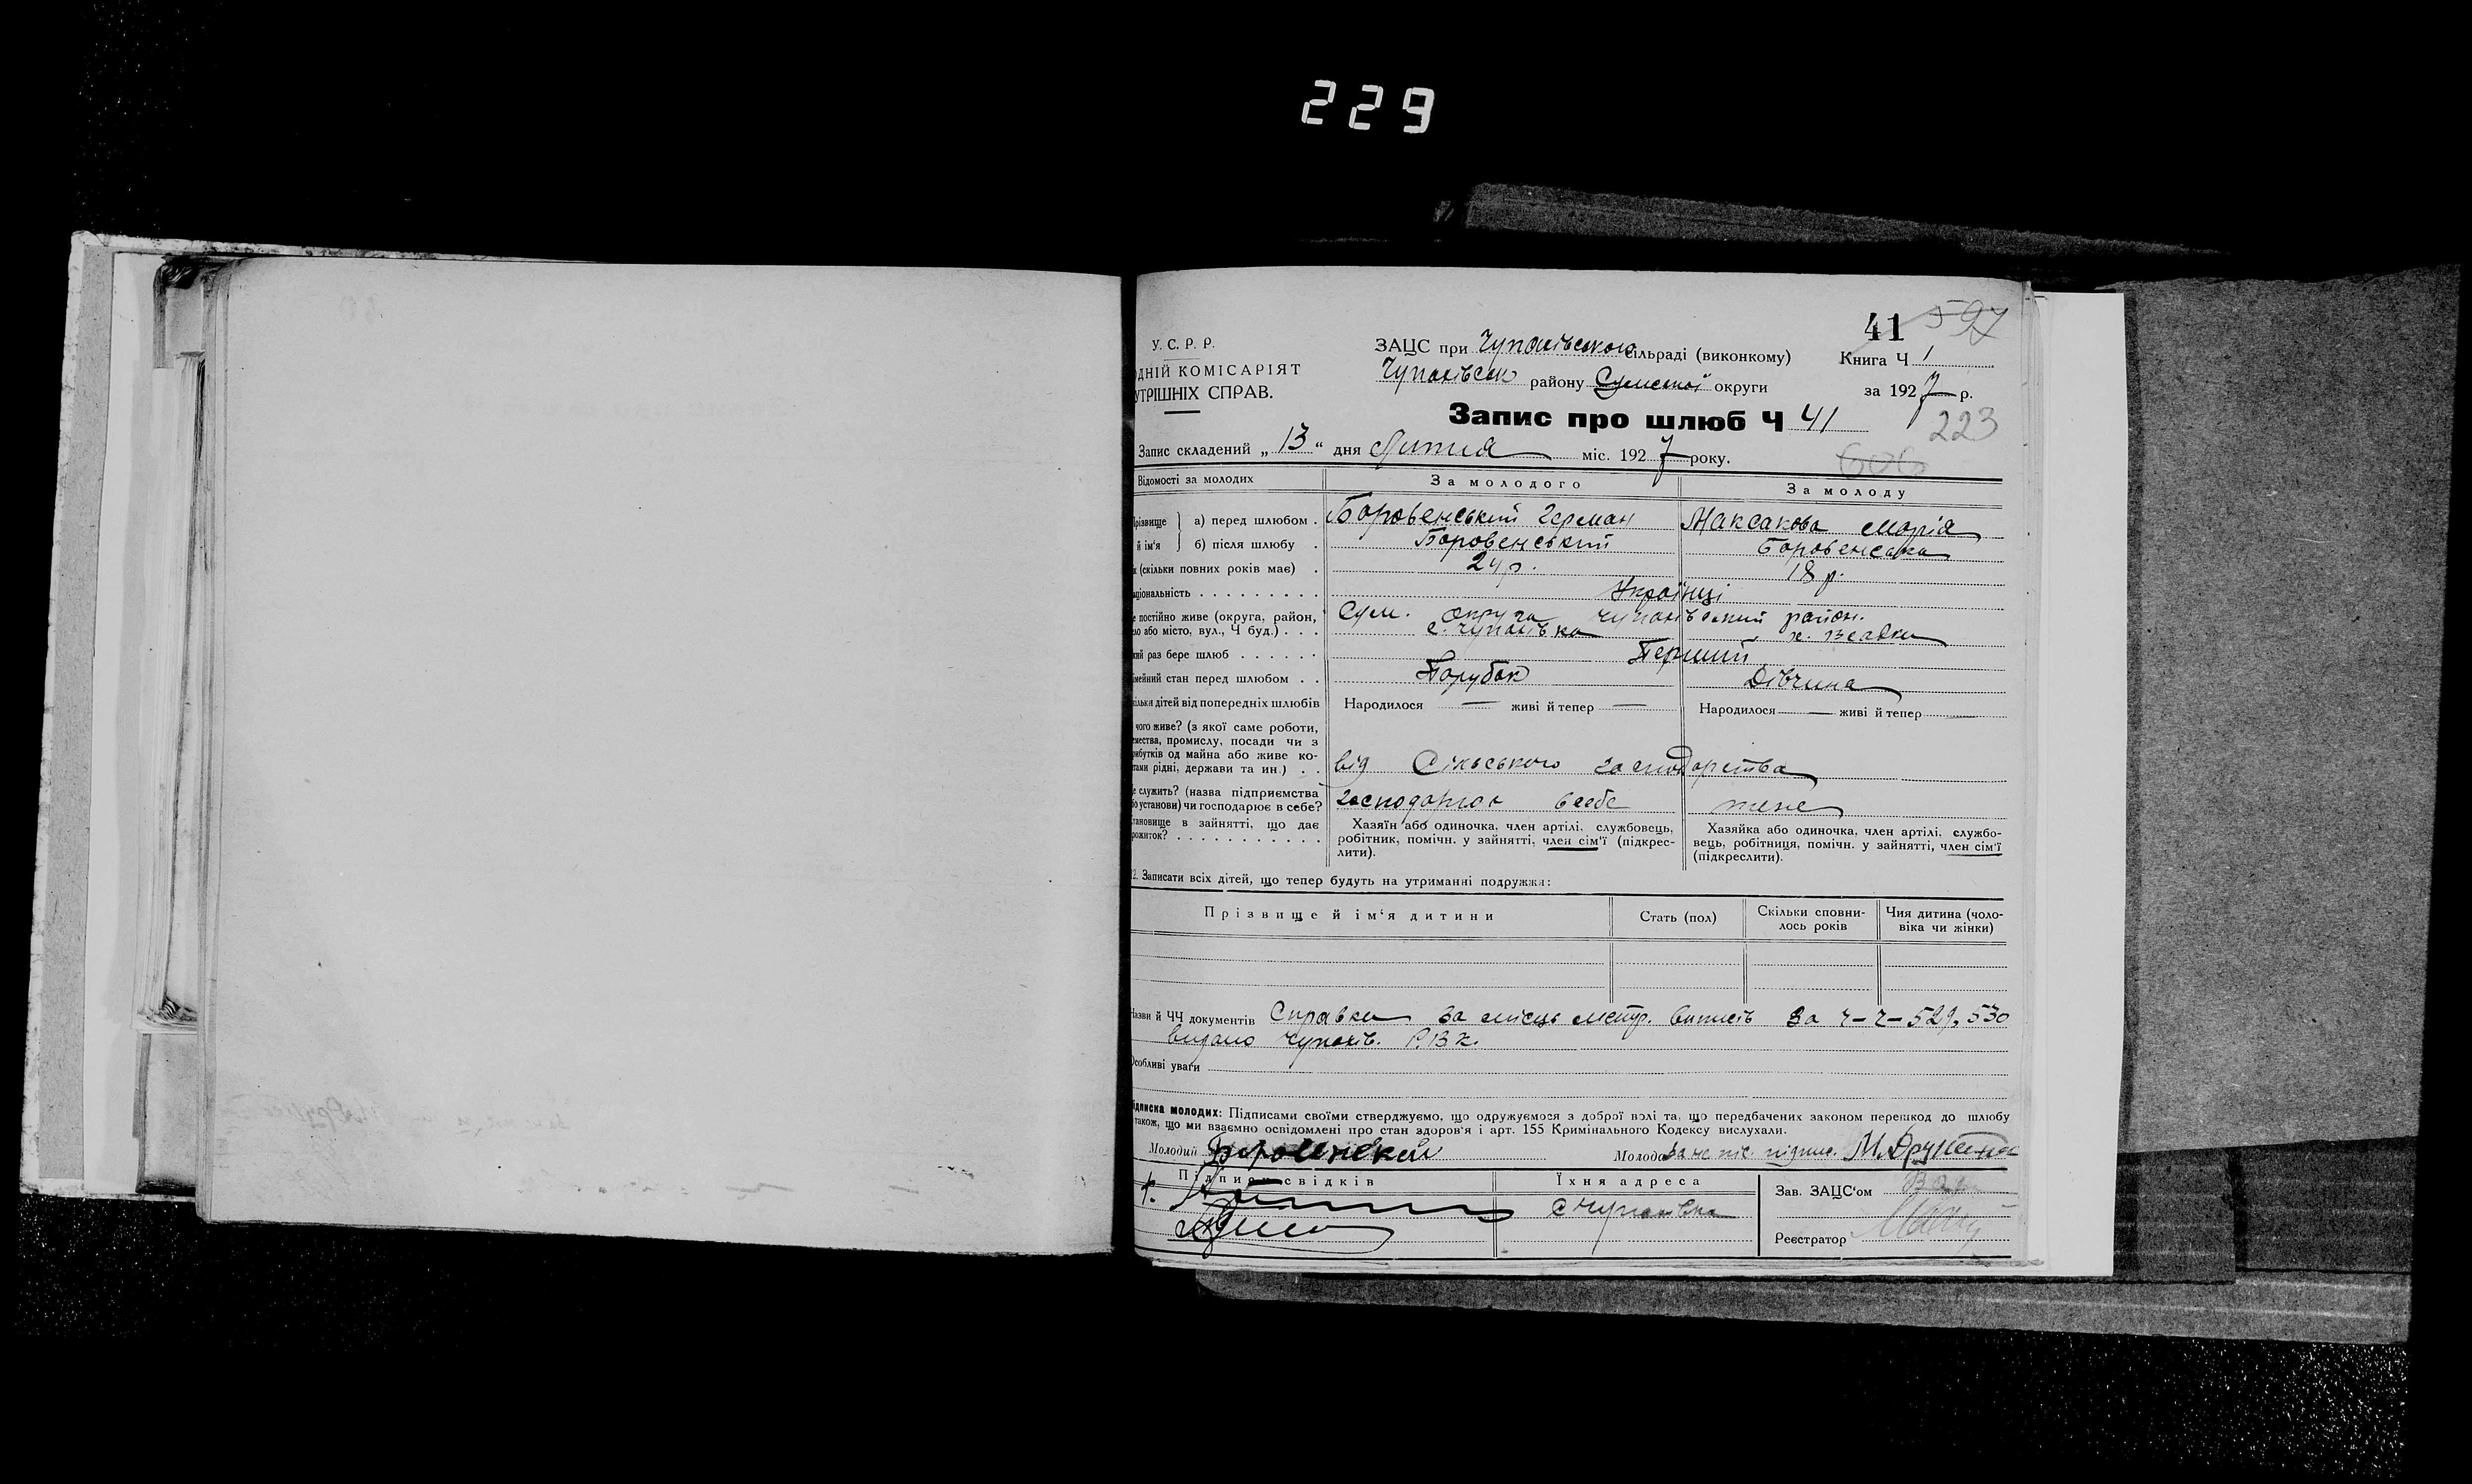 229
41 597
У. С. Р. Р.
ДНІЙ КОМІСАРІЯТ
УТРІШНІХ СПРАВ.
ЗАЦС при Чупахівською сільраді (виконкому)
Чупахівськ району Сумської округи
Книга Ч 1
за 1927 р.
Запис про шлюб Ч 41
223
600
Запис складений „ 13 “ дня Липня міс. 1927 року.
Відомості за молодих За молодого За молоду
різвище а) перед шлюбом . Боровенський Герман Максакова Марія
й ім'я б) після шлюбу . Боровенський Боровенська
(скільки повних років має) . 24 р. 18 р.
ціональність . . . . . . . . . Українці
постійно живе (округа, район, Сум. округа Чупахівський район.
ло або місто, вул., Ч буд.) . . . с. Чупахівка х.
кий раз бере шлюб . . . . . . Перший
імейний стан перед шлюбом . . Парубок Дівчина
кільки дітей від попередніх шлюбів Народилося — живі й тепер — Народилося — живі й тепер
чого живе? (з якої саме роботи,
емества, промислу, посади чи з
рибутків од майна або живе ко-
тами рідні, держави та ин.) . . від Сільського господарства
е служить? (назва підприємства
бо установи) чи господарює в себе? господарює в себе теж
тановище в зайнятті, що дає
рожиток? . . . . . . . . . . .
Хазяїн або одиночка, член артілі, службовець,
робітник, помічн. у зайнятті, член сім'ї (підкрес-
лити).
Хазяйка або одиночка, член артілі, службо-
вець, робітниця, помічн. у зайнятті, член сім'ї
(підкреслити).
2. Записати всіх дітей, що тепер будуть на утриманні подружжя:
Прізвище й ім‘я дитини Стать (пол) Скільки сповни-
лось років Чия дитина (чоло-
віка чи жінки)
Назви й ЧЧ документів Справка за місць метр. виписів за ч-ч- 529, 530
видано Чупахів. Р.В.К.
Особливі уваги
ідписка молодих: Підписами своїми стверджуємо, що одружуємося з доброї волі та, що передбачених законом перешкод до шлюбу
також, що ми взаємно освідомлені про стан здоров'я і арт. 155 Кримінального Кодексу вислухали.
Молодий Молода за не піс. підпис.
Підписи свідків Їхня адреса
Зав. ЗАЦС‘ом
с Чупахівка
Реєстратор